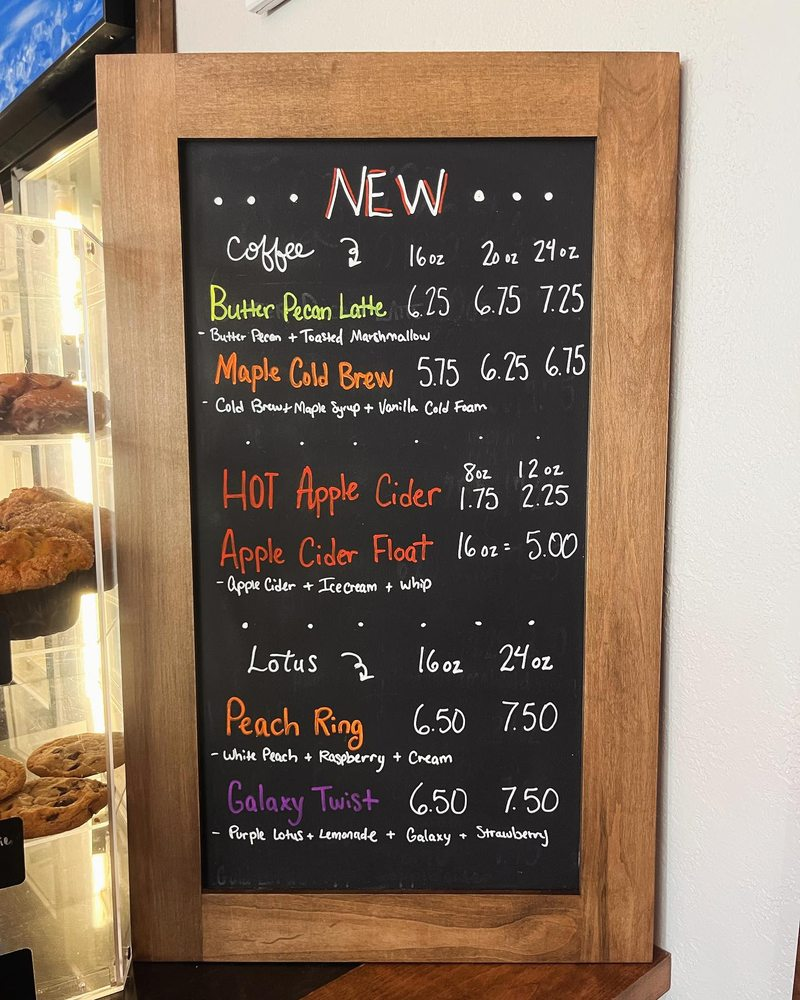 ... NEW ...
Coffee 16oz 20 oz 24 oz
Butter Pecan Latte 6.25 6.75 7.25
- Butter Pecan + Toasted Marshmallow
Maple Cold Brew 5.75 6.25 6.75
- Cold Brew + Maple Syrup + Vanilla Cold Foam
8oz 12 oz
HOT Apple Cider 1.75 2.25
Apple Cider Float 16 oz = 5.00
- Apple Cider + Ice cream + Whip
Lotus 16oz 24oz
Peach Ring 6.50 7.50
- White Peach + Raspberry + Cream
Galaxy Twist 6.50 7.50
- Purple Lotus + Lemonade + Galaxy + Strawberry